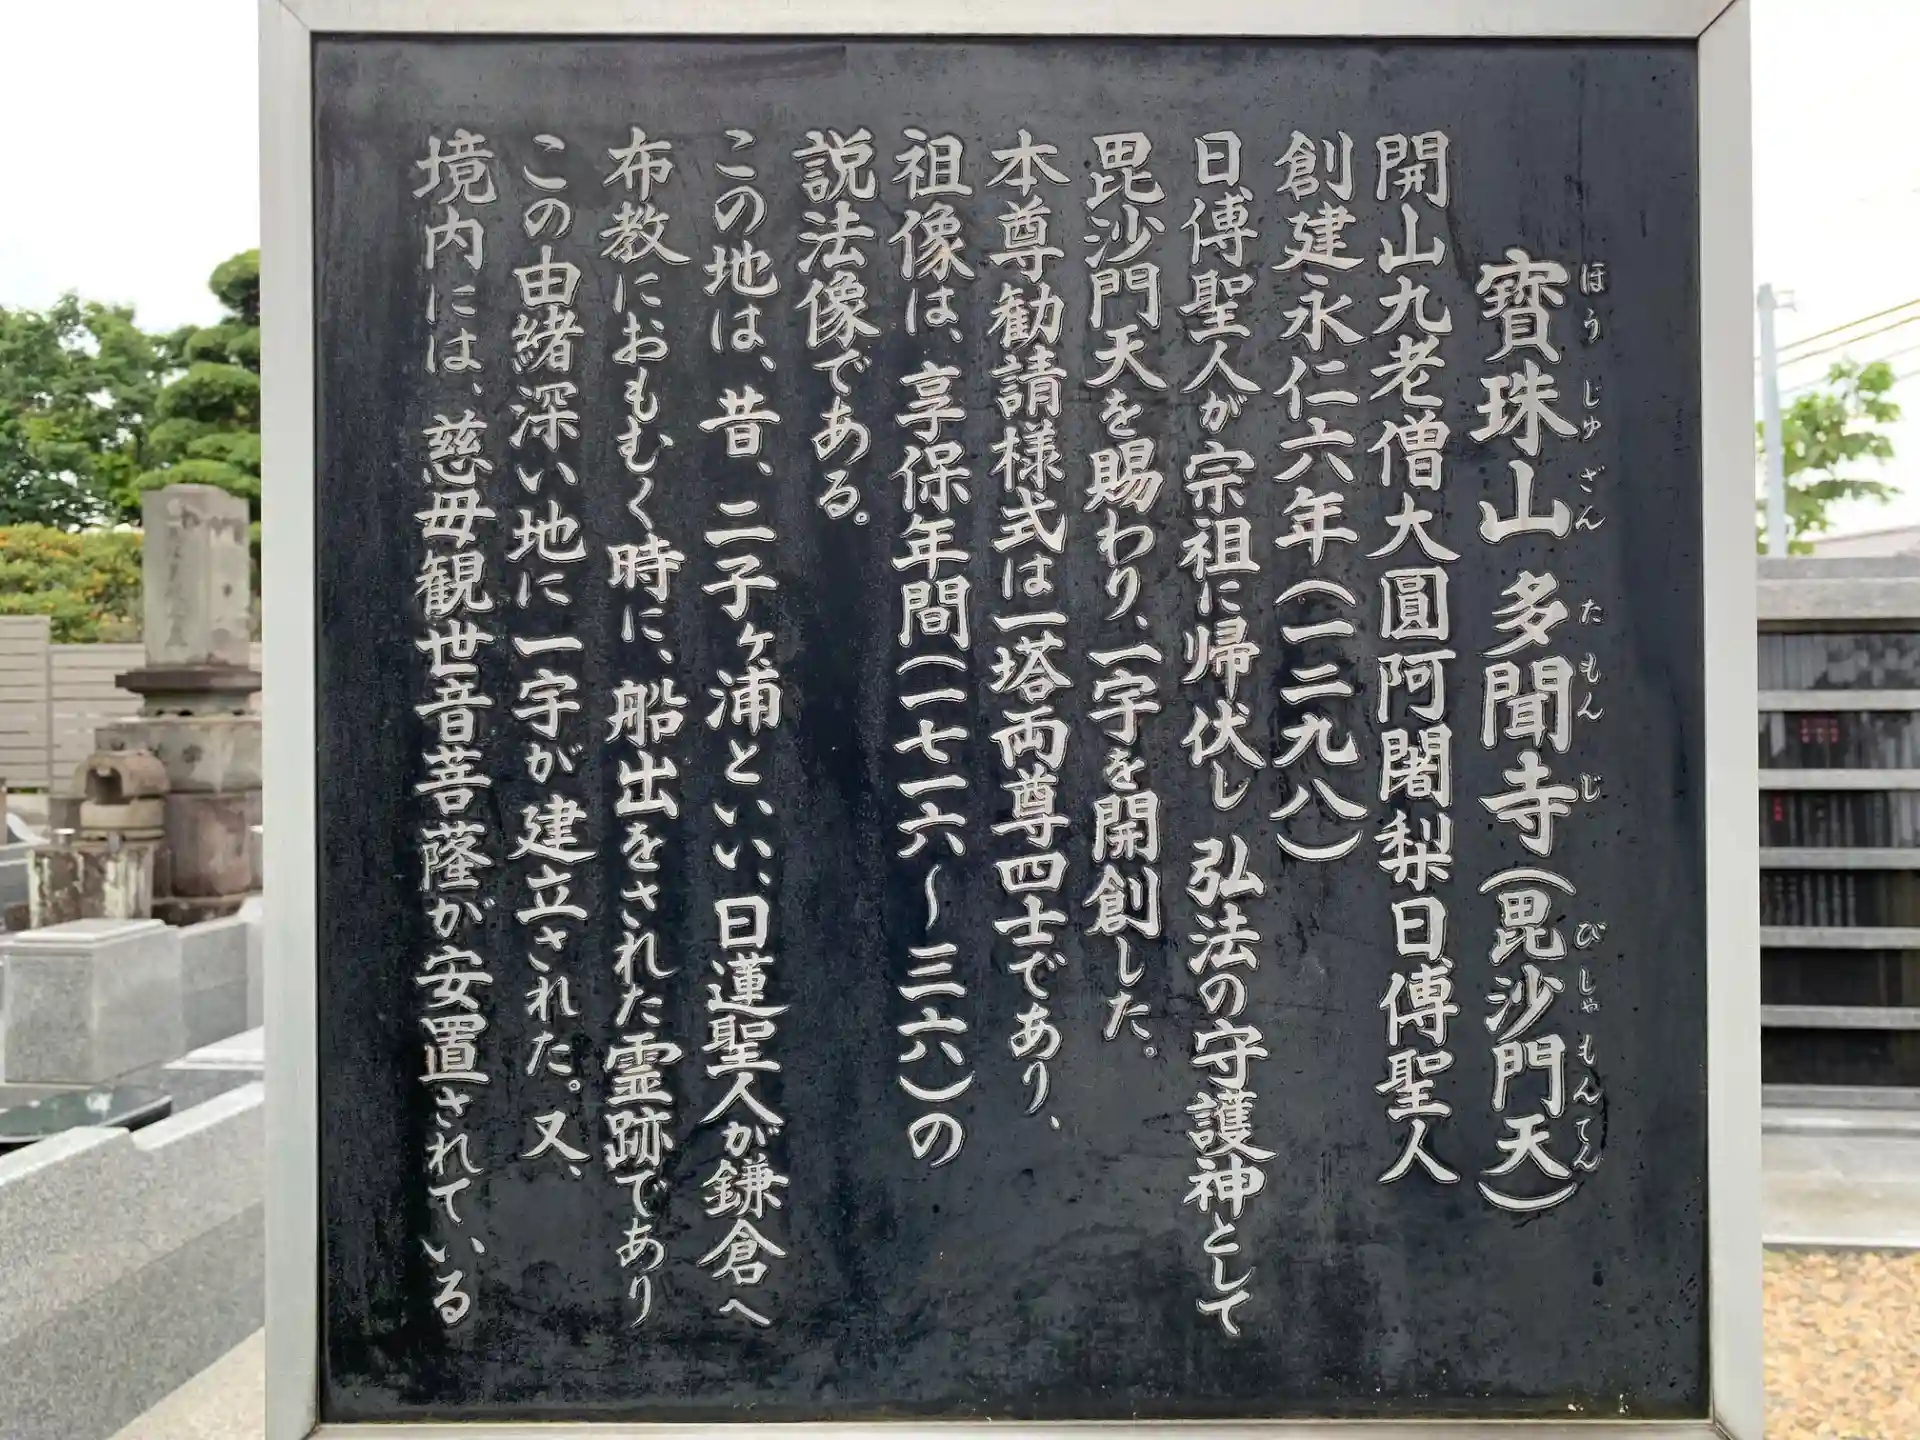 寳珠山 多聞寺(毘沙門天)
ほうじゅざん たもんじ びしゃもんてん
開山九老僧大圓阿闍梨日傳聖人
創建永仁六年(一二九八)
日傳聖人が宗祖に帰伏し 弘法の守護神として
毘沙門天を賜わり、一宇を開創した。
本尊勧請様式は一塔両尊四士であり、
祖像は、享保年間(一七一六〜三六)の
説法像である。
この地は、昔、二子ヶ浦といい、日蓮聖人が鎌倉へ
布教におもむく時に、船出をされた霊跡であり
この由緒深い地に一宇が建立された。又、
境内には、慈母観世音菩薩が安置されている